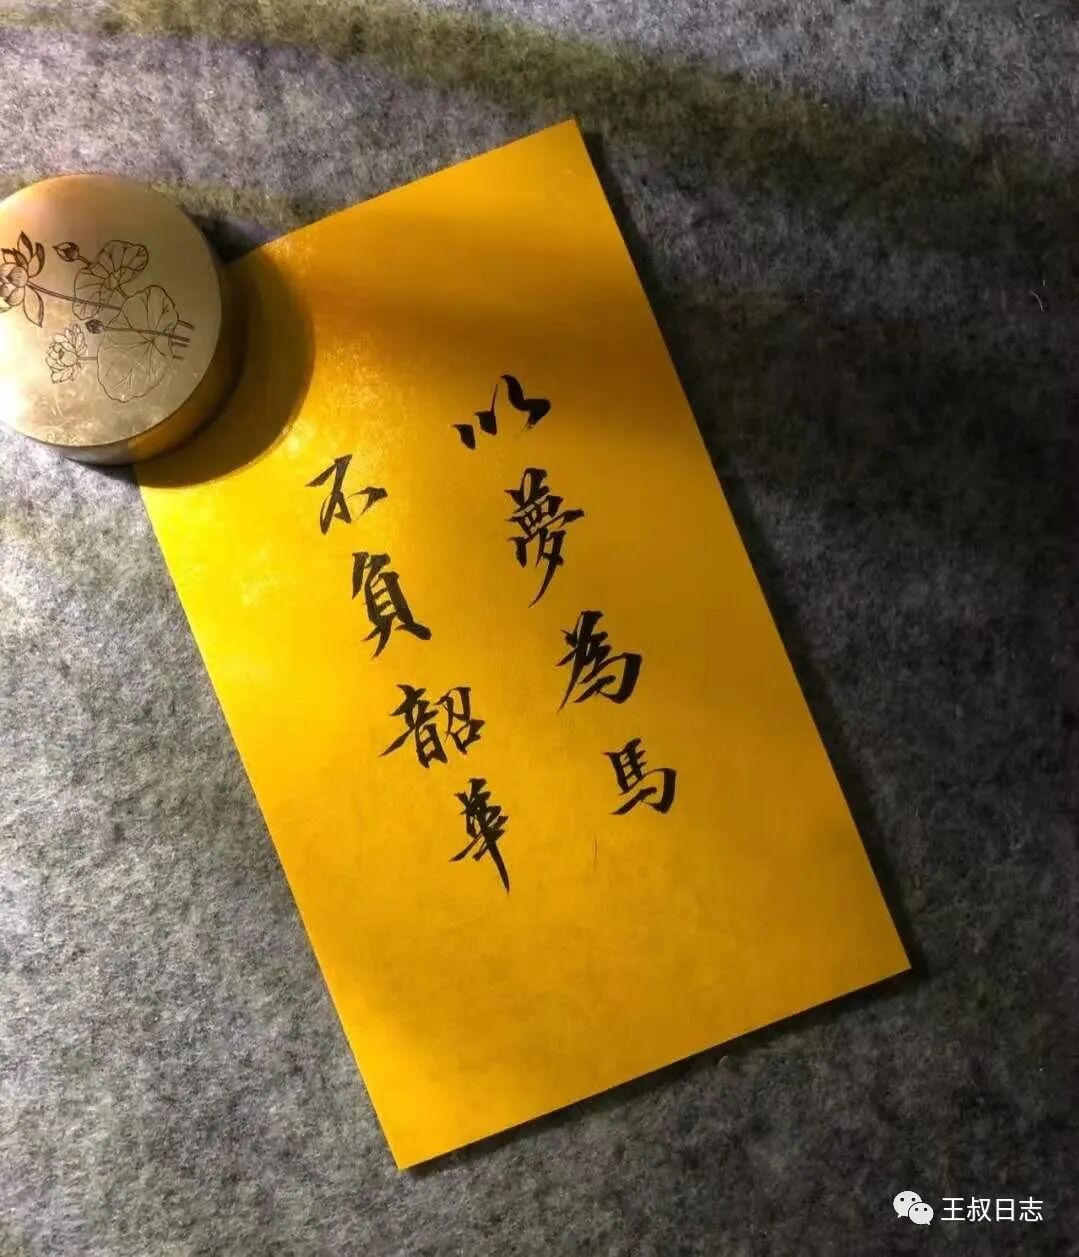 以夢為馬
不負韶華
王叔日志